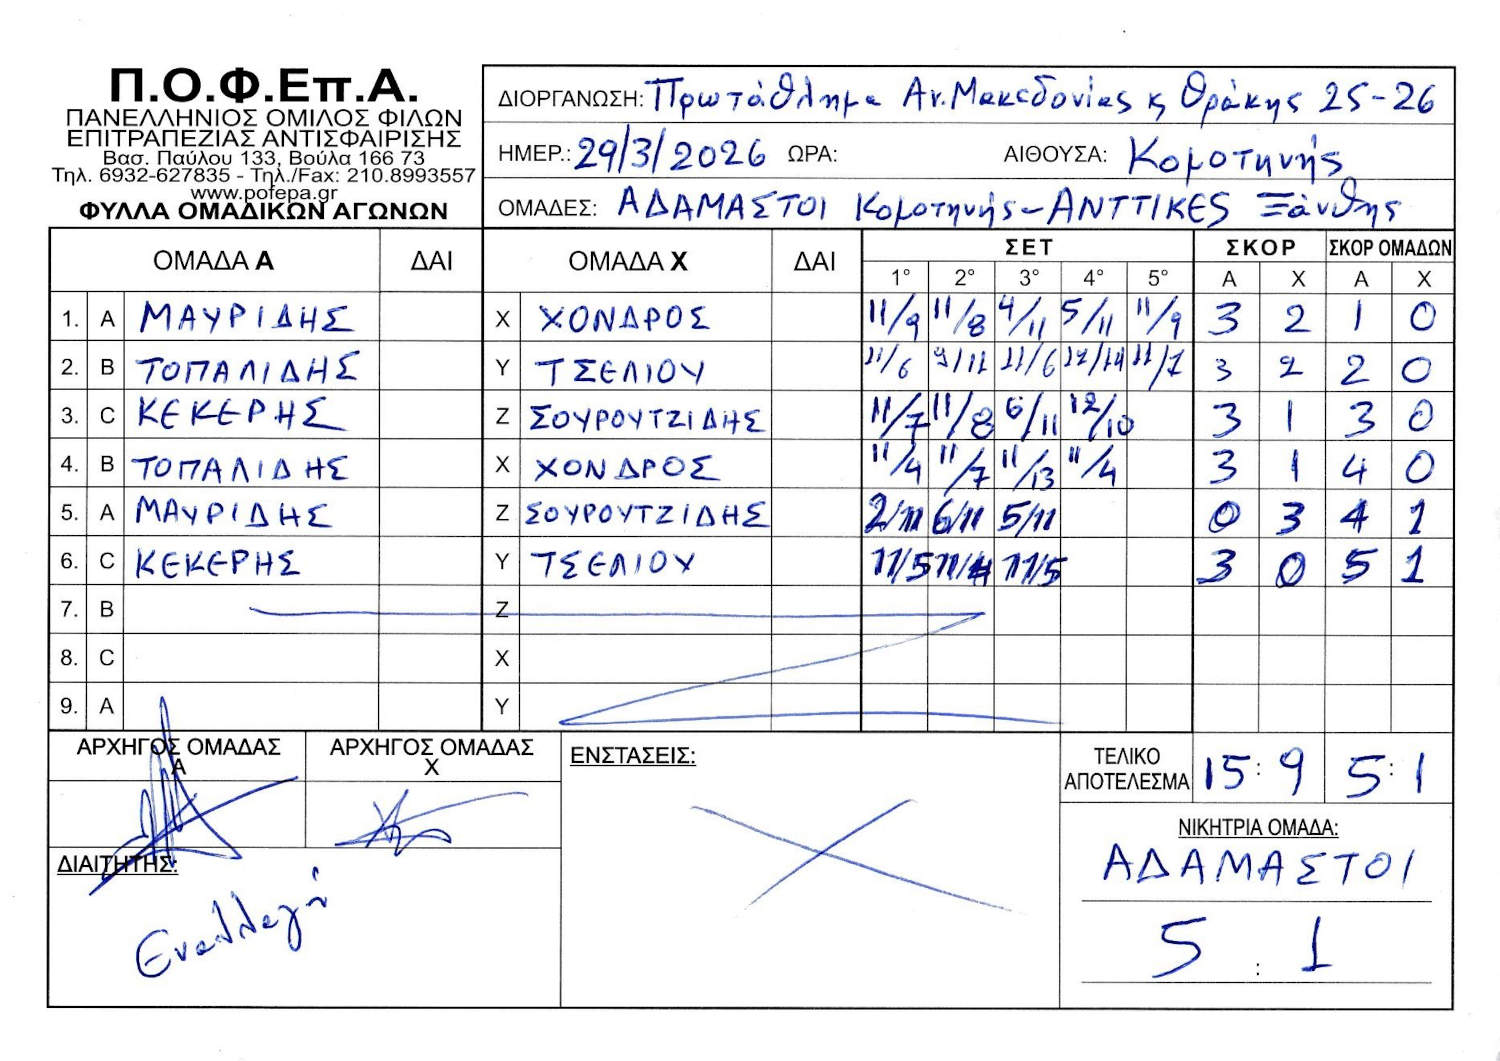 Π.Ο.Φ.Επ.Α.
ΠΑΝΕΛΛΗΝΙΟΣ ΟΜΙΛΟΣ ΦΙΛΩΝ
ΕΠΙΤΡΑΠΕΖΙΑΣ ΑΝΤΙΣΦΑΙΡΙΣΗΣ
Βασ. Παύλου 133, Βούλα 166 73
Τηλ. 6932-627835 - Τηλ./Fax: 210.8993557
www.pofepa.gr
ΦΥΛΛΑ ΟΜΑΔΙΚΩΝ ΑΓΩΝΩΝ
ΔΙΟΡΓΑΝΩΣΗ: Πρωτάθλημα Αν. Μακεδονίας κ Θράκης 25-26
ΗΜΕΡ.: 29/3/2026 ΩΡΑ: ΑΙΘΟΥΣΑ: Κομοτηνής
ΟΜΑΔΕΣ: ΑΔΑΜΑΣΤΟΙ Κομοτηνής - ΑΝΤΤΙΚΕS Ξάνθης
ΟΜΑΔΑ Α ΔΑΙ ΟΜΑΔΑ Χ ΔΑΙ ΣΕΤ ΣΚΟΡ ΣΚΟΡ ΟΜΑΔΩΝ
1° 2° 3° 4° 5° Α Χ Α Χ
1. A ΜΑΥΡΙΔΗΣ X ΧΟΝΔΡΟΣ 11/9 11/8 4/11 5/11 11/9 3 2 1 0
2. B ΤΟΠΑΛΙΔΗΣ Y ΤΣΕΛΙΟΥ 11/6 9/11 11/6 12/14 11/7 3 2 2 0
3. C ΚΕΚΕΡΗΣ Z ΣΟΥΡΟΥΤΖΙΔΗΣ 11/7 11/8 6/11 12/10 3 1 3 0
4. B ΤΟΠΑΛΙΔΗΣ X ΧΟΝΔΡΟΣ 11/4 11/7 11/13 11/4 3 1 4 0
5. A ΜΑΥΡΙΔΗΣ Z ΣΟΥΡΟΥΤΖΙΔΗΣ 2/11 6/11 5/11 0 3 4 1
6. C ΚΕΚΕΡΗΣ Y ΤΣΕΛΙΟΥ 11/5 11/4 11/5 3 0 5 1
7. B Z
8. C X
9. A Y
ΑΡΧΗΓΟΣ ΟΜΑΔΑΣ Α ΑΡΧΗΓΟΣ ΟΜΑΔΑΣ Χ ΕΝΣΤΑΣΕΙΣ: ΤΕΛΙΚΟ ΑΠΟΤΕΛΕΣΜΑ 15:9 5:1
ΝΙΚΗΤΡΙΑ ΟΜΑΔΑ:
ΑΔΑΜΑΣΤΟΙ
5 : 1
ΔΙΑΙΤΗΤΗΣ:
Εναλλαγή